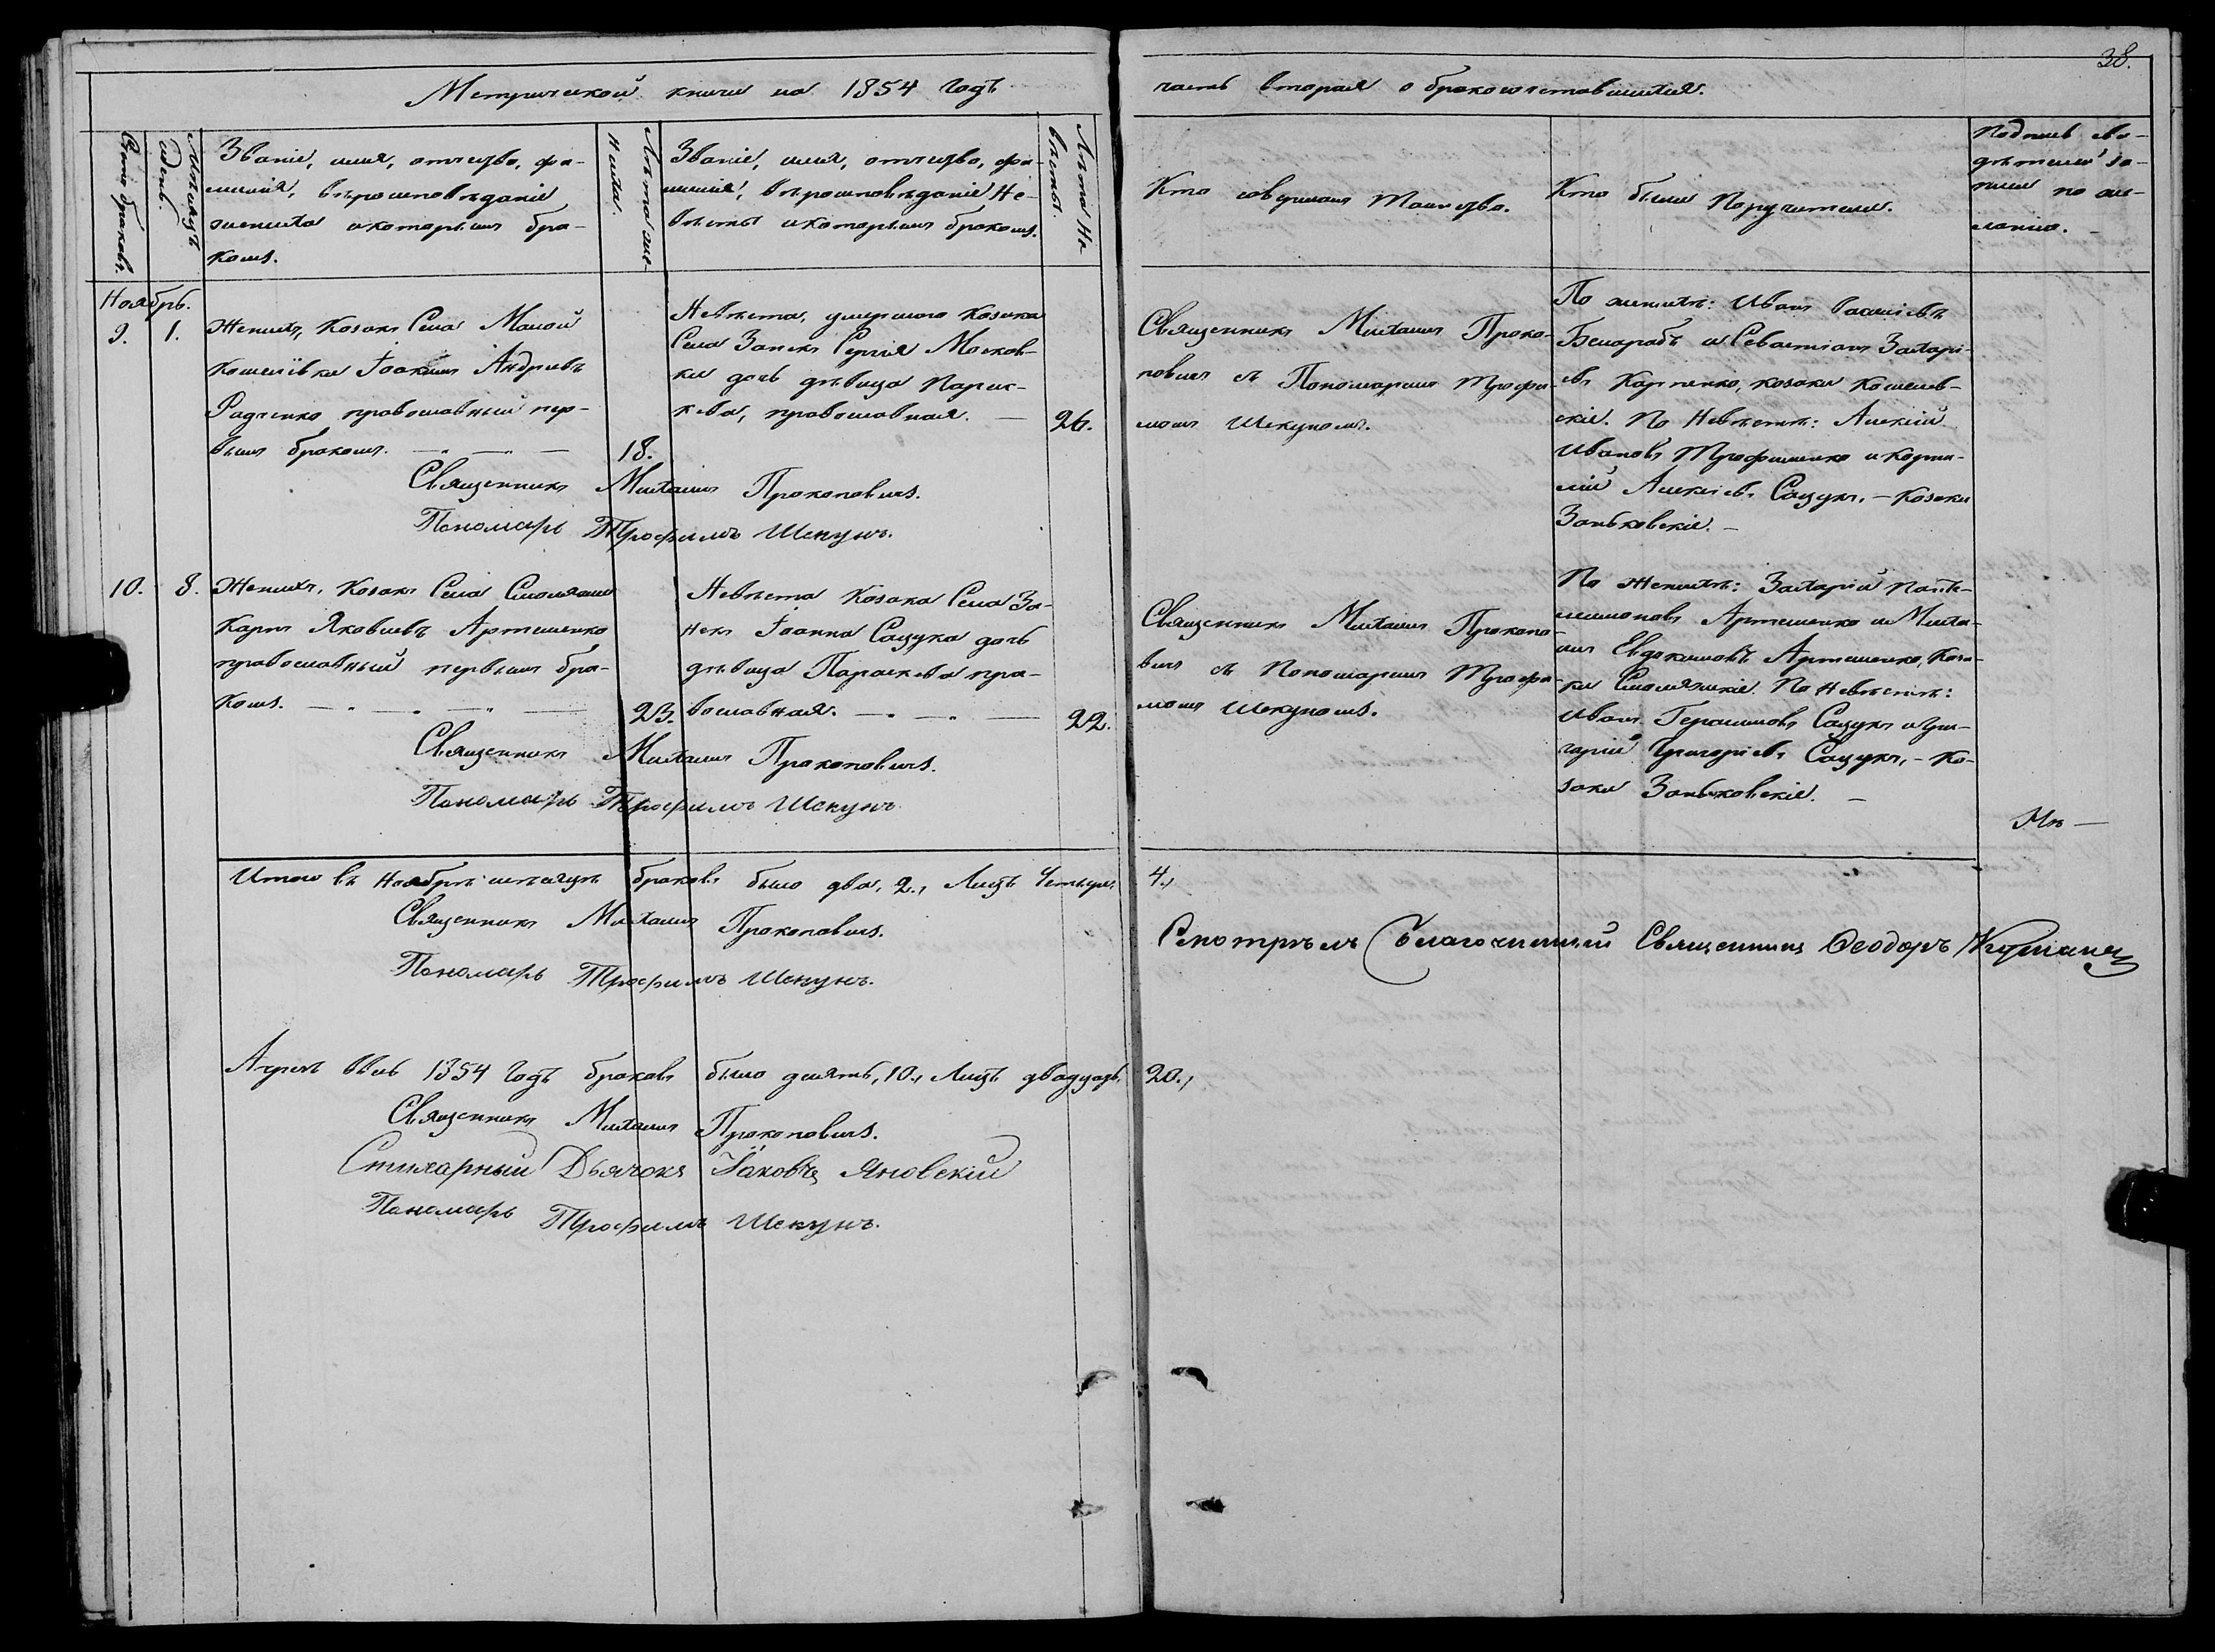 38.
Метрической книги на 1854 годъ
часть вторая о бракосочетавшихся.
Счетъ браковъ.
Мѣсяцъ
и день.
Званіе, имя, отчество, фа-
милія, вѣроисповѣданіе
жениха и которымъ бра-
комъ.
Лѣта же-
ниха.
Званіе, имя, отчество, фа-
милія, вѣроисповѣданіе Не-
вѣсты и которымъ бракомъ.
Лѣта Не-
вѣсты.
Кто совершалъ Таинство.
Кто были Поручители.
Подпись сви-
дѣтелей за-
писи по же-
ланію.
Ноябрь.
9. 1.
Женихъ, Козакъ Села Малой
Кошелівки Іоакимъ Андреевъ
Радченко православный пер-
вымъ бракомъ.
18.
Невѣста, умершого Козака
Села Занекъ Сергія Москов-
ки дочь дѣвица Парас-
кева, православная.
26.
Священникъ Михаилъ Проко-
повичъ съ Пономаремъ Трофи-
момъ Шекуномъ.
По женихѣ: Иванъ Василіевъ
Бенарабъ и Севастіанъ Захарі-
евъ Карпенко, козаки Кошелев-
скіе. По Невѣстѣ: Алексій
Ивановъ Трофименко и Корни-
лій Алексіевъ Сацукъ, - Козаки
Заньковскіе.
Священникъ Михаилъ Прокоповичъ.
Пономарь Трофимъ Шекунъ.
10. 8.
Женихъ, Козакъ Села Смоляжи
Карпъ Яковлевъ Артеменко
православный первымъ бра-
комъ.
23.
Невѣста Козака Села За-
некъ Іоанна Сацука дочь
дѣвица Параскева пра-
вославная.
22.
Священникъ Михаилъ Прокопо-
вичъ съ Пономаремъ Трофи-
момъ Шекуномъ.
По Женихѣ: Захарій Панте-
лимоновъ Артеменко и Миха-
илъ Евдокимовъ Артеменко, Коза-
ки Смоляжскіе. По Невѣстѣ:
Иванъ Герасимовъ Сацукъ и Гри-
горій Григоріевъ Сацукъ, - Ко-
заки Заньковскіе.
Священникъ Михаилъ Прокоповичъ.
Пономарь Трофимъ Шекунъ
Итого въ Ноябрѣ мѣсяцѣ браковъ было два, 2., Лицъ Четыре, 4.,
Священникъ Михаилъ Прокоповичъ.
Пономарь Трофимъ Шекунъ.
Смотрѣлъ Благочинный Священникъ Феодоръ
А чрезъ весь 1854 годъ браковъ было десять, 10., Лицъ двадцать, 20.,
Священникъ Михаилъ Прокоповичъ.
Стихарный Дьячокъ Іаковъ Яновскій
Пономарь Трофимъ Шекунъ.